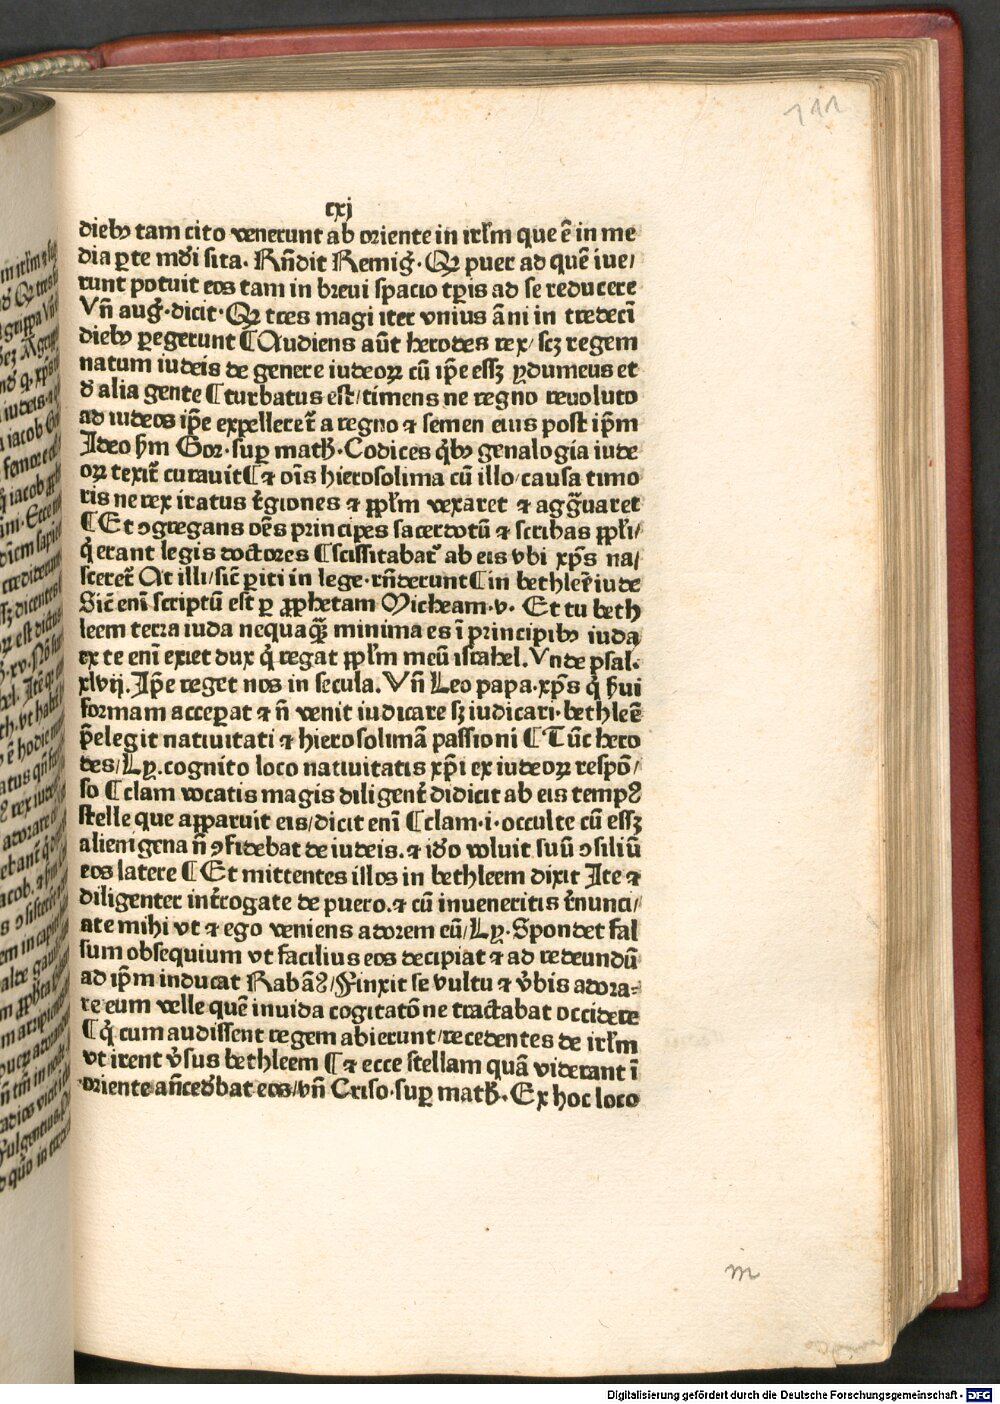 111
cxj
diebꝰ tam cito venerunt ab oriente in irłm que ē in me
dia ꝑte mōi sita. Rñdit Remiḡ. Qꝛ puer ad quē iue/
runt potuit eos tam in breui spacio tꝑis ad se reducere
Vñ auḡ. dicit. Qꝛ tres magi iter vnius āni in tredecī
diebꝰ ꝑegerunt ⸿Audiens aūt herodes rex/ scꝫ regem
natum iudeis de genere iudeoꝝ cū ip̄e essꝫ ydumeus et
đ alia gente ⸿turbatus est/timens ne regno reuoluto
ad iudeos ip̄e expelleret̄ a regno ⁊ semen eius post ip̄m
Ideo hm̄ Gor. suꝑ matħ. Codices q̇bꝰ genalogia iude
oꝝ texit̄ curauit⸿⁊ oīs hierosolima cū illo/causa timo
ris ne rex iratus r̄giones ⁊ ꝓpłm vexaret ⁊ agg̃uaret
⸿Et ↄgregans oēs principes sacerdotū ⁊ scribas ꝓpłi/
q̇ erant legis doctores ⸿scissitabat̄ ab eis vbi xp̄s na/
sceret̄ At illi/sic̄ ꝑiti in lege. rñderunt⸿in bethleē iude
Sic̄ enī scriptū est ꝑ ꝓphetam Micheam. v. Et tu beth
leem terra iuda nequaꝙ̃ minima es ī principibꝰ iuda
ex te enī exiet dux q̇ regat ꝓpłm meū israhel. Vnde psal.
xlvij. Ip̄e reget nos in secula. Vñ Leo papa. xp̄s q̇ ẜui
formam acceꝑat ⁊ ñ venit iudicare sꝫ iudicari. bethleē
p̄elegit natiuitati ⁊ hierosolimā passioni ⸿Tūc hero
des/Ly. cognito loco natiuitatis xp̄i ex iudeoꝝ respō/
so ⸿clam vocatis magis diligent̄ didicit ab eis tempꝰ
stelle que apparuit eis/dicit enī ⸿clam. i. occulte cū essꝫ
alienigena ñ ↄfidebat de iudeis. ⁊ iđo voluit suū ↄsiliū
eos latere ⸿Et mittentes illos in bethleem dixit Ite ⁊
diligenter int̄rogate de puero. ⁊ cū inueneritis r̄nunci/
ate mihi vt ⁊ ego veniens adorem eū/Ly. Spondet fal
sum obsequium vt facilius eos decipiat ⁊ ad redeundū
ad ip̄m inducat Rabāꝰ/Finxit se vultu ⁊ v̄bis adora⸗
re eum velle quē inuida cogitatōne tractabat occidere
⸿q̇ cum audissent regem abierunt/recedentes de irłm
vt irent v̄sus bethleem ⸿⁊ ecce stellam quā viderant ī
oriente añcedebat eos/vñ Criso. suꝑ matħ. Ex hoc loco
m
Digitalisierung gefördert durch die Deutsche Forschungsgemeinschaft - DFG